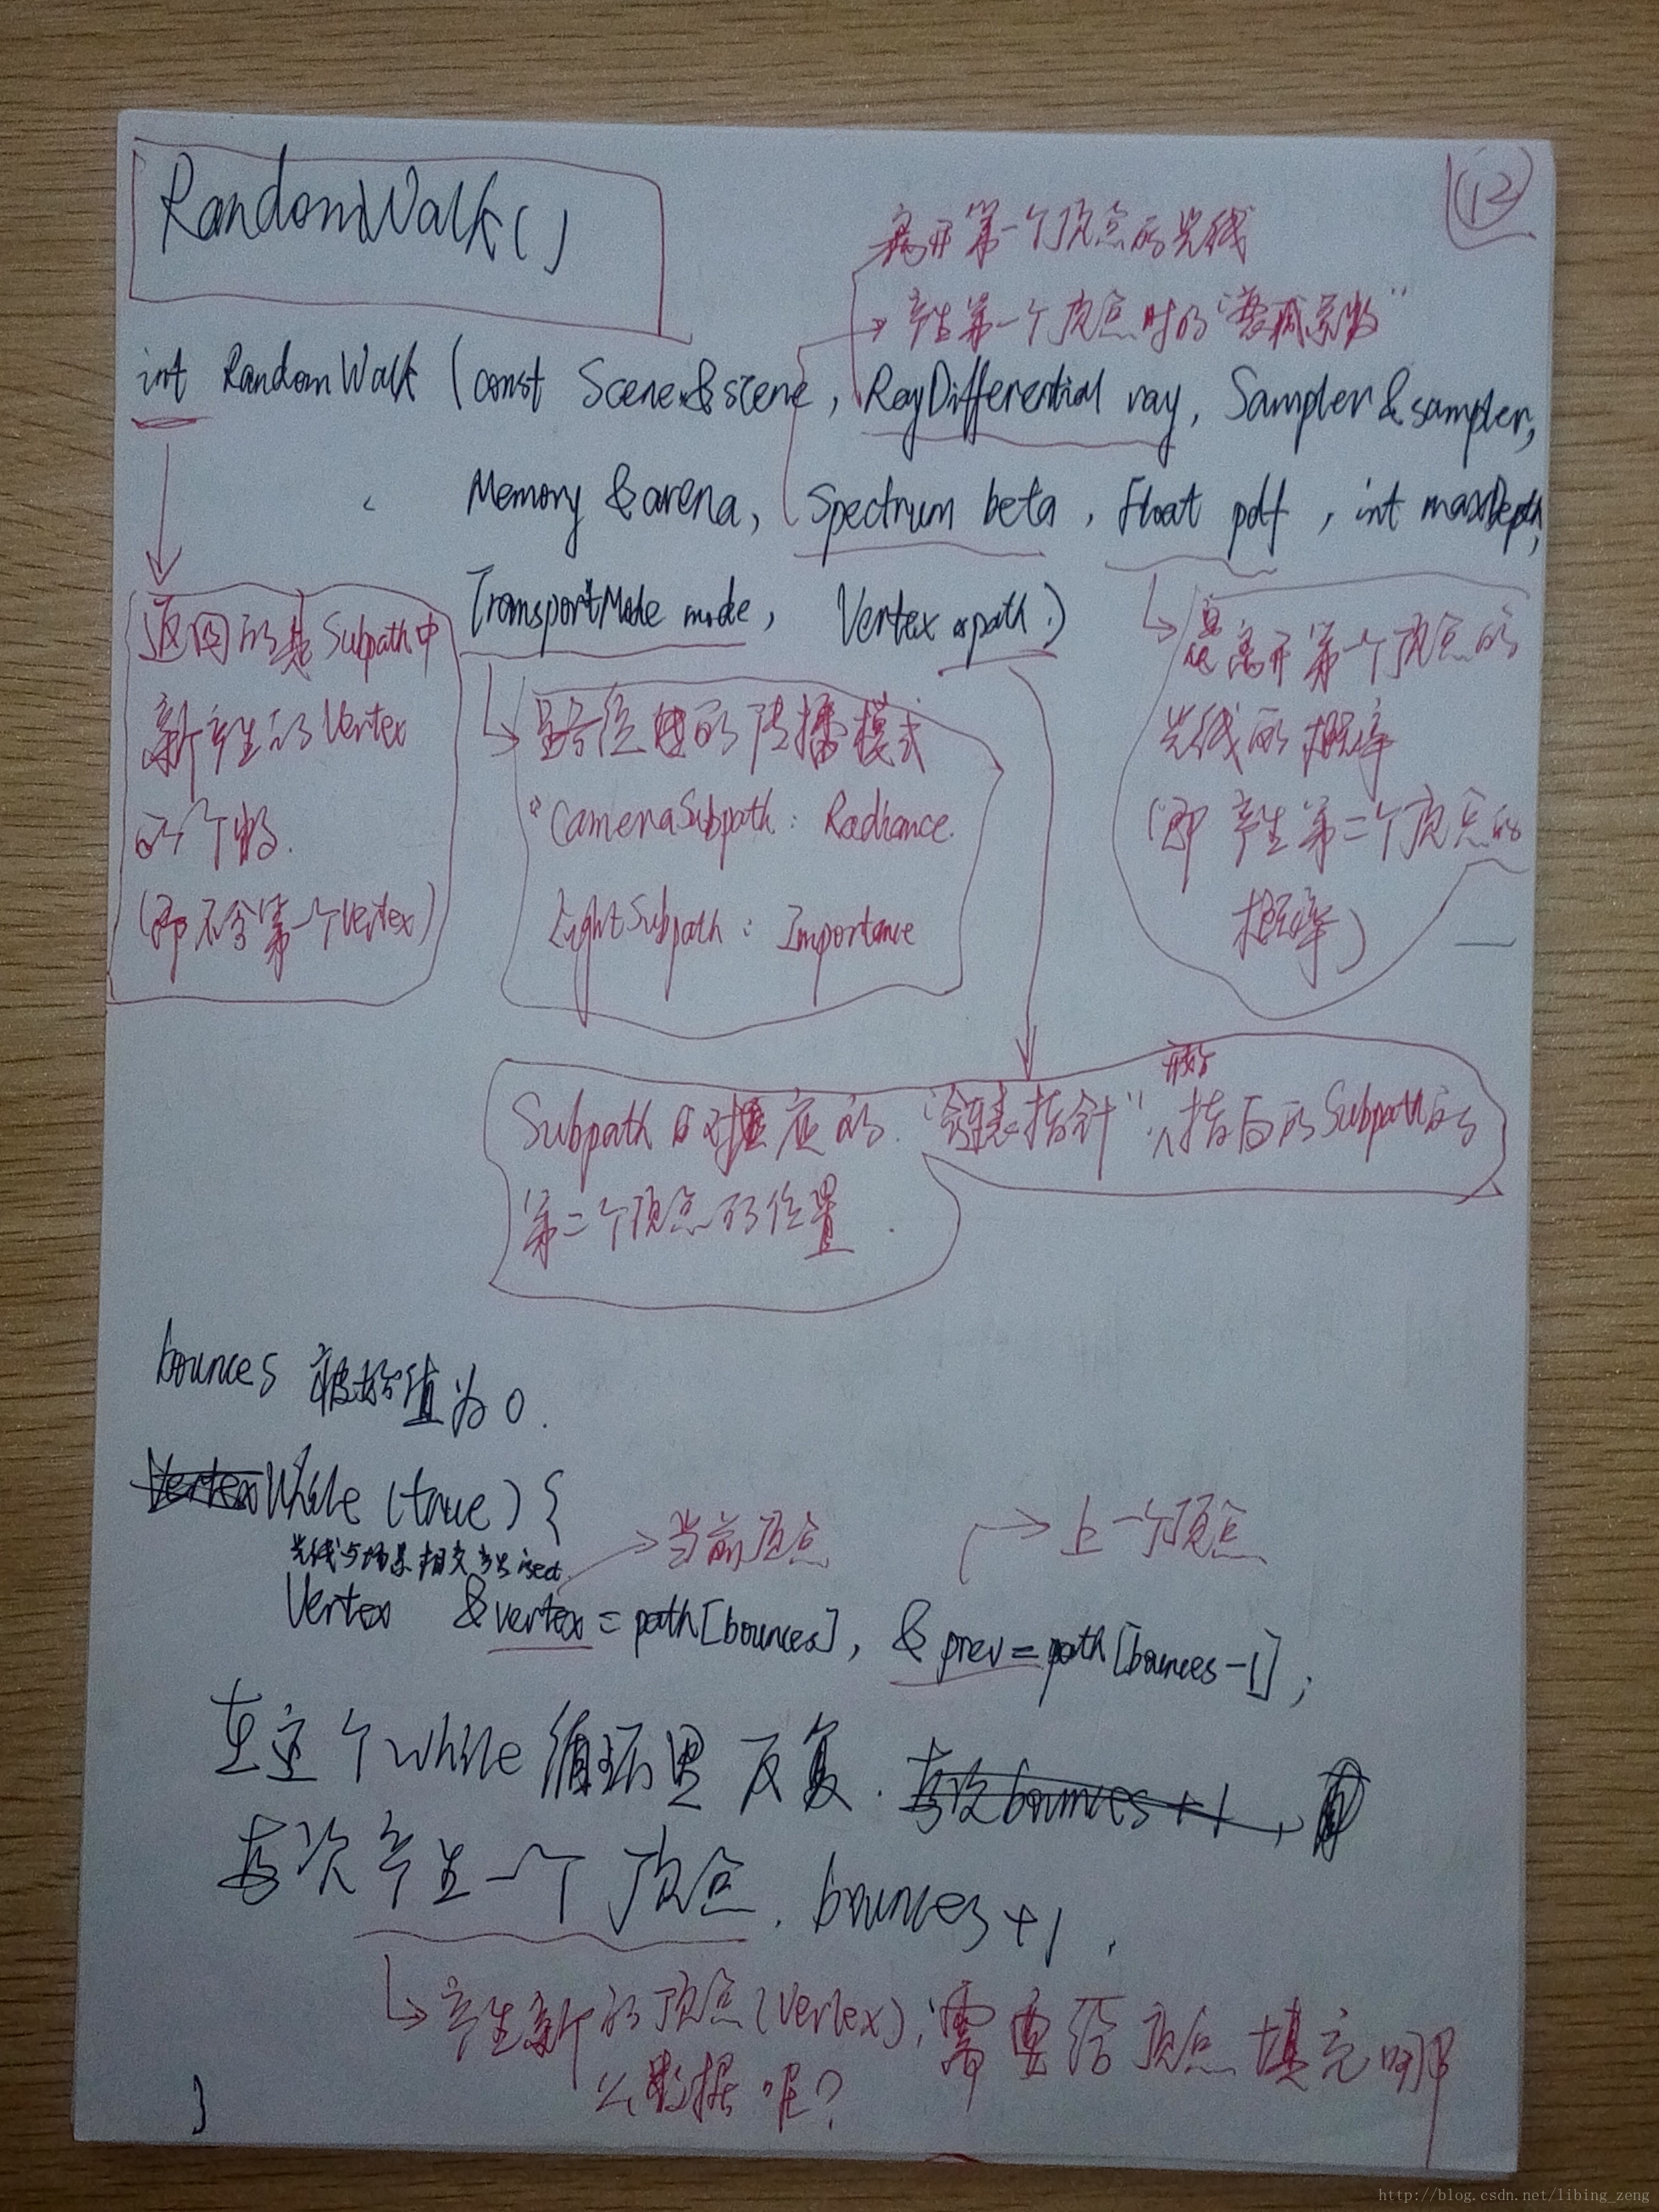 RandomWalk()
12
离开第一个顶点的光线
产生第一个顶点时的“衰减系数”
int RandomWalk (const Scene &scene, RayDifferential ray, Sampler &sampler,
Memory &arena, Spectrum beta, Float pdf, int maxDepth,
TransportMode mode, Vertex *path.)
返回的是Subpath中
新产生的Vertex
的个数.
(即不含第一个Vertex)
路径的传播模式
CameraSubpath: Radiance.
LightSubpath: Importance
是离开第一个顶点的
光线的概率
(即产生第二个顶点的
概率)
Subpath 对应的“链表指针”,开始指向的Subpath的
第二个顶点的位置.
bounces 被初始值为0.
While (true) {
光线与场景相交 isect.
当前顶点
上一个顶点
Vertex &vertex = path[bounces], & prev = path[bounces-1];
在这个while循环里反复.
每次产生一个顶点, bounces+1.
产生新的顶点(Vertex), 需要给顶点填充哪
么数据呢?
}
http://blog.csdn.net/libing_zeng